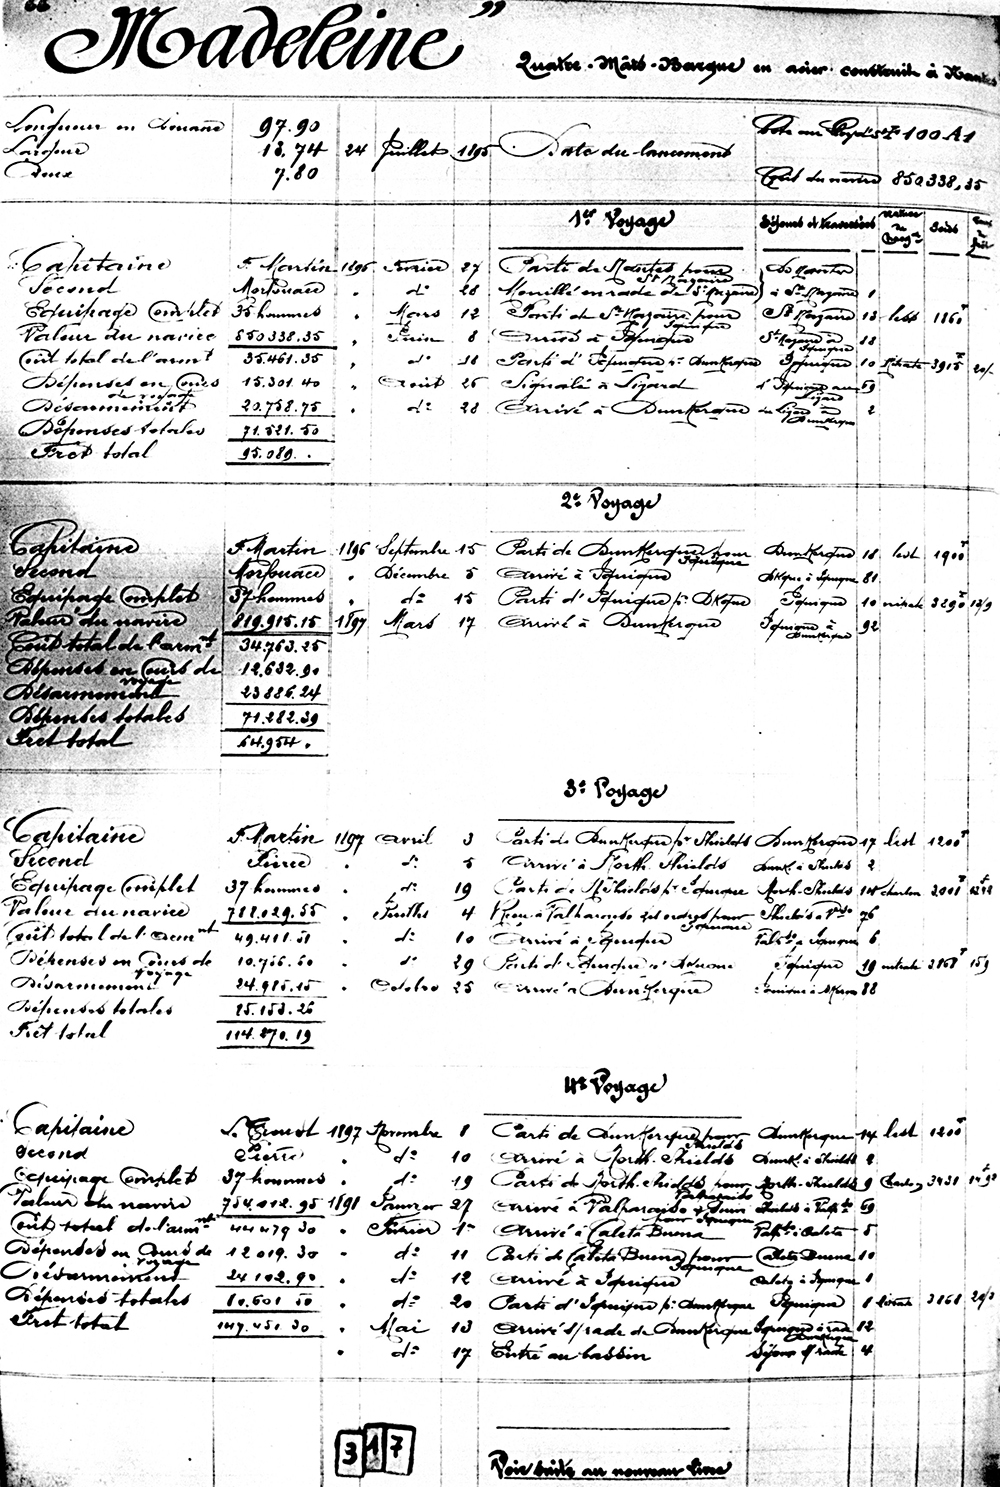 66
Madeleine"
Quatre-Mâts-Barque en acier construit à Nantes
Longueur en Douane 97.90 Cote au 100 A1
Largeur 13.74 24 Juillet 1895 Date du lancement
Creux 7.80 Coût du navire 850338,35
1er Voyage Séjours et traversées
Capitaine F. Martin 1896 Février 27 Parti de Nantes pour St Nazaire de Nantes
Second Morfouace " do 28 Mouillé en rade de St Nazaire à St Nazaire 1
Equipage Complet 35 hommes " Mars 12 Parti de St Nazaire pour Iquique St Nazaire 13 lest 1160T
Valeur du navire 850338.35 " Juin 8 Arrivé à Iquique St Nazaire à Iquique 88
Coût total de l'armt 35.461.35 " do 18 Parti d'Iquique pr Dunkerque Iquique 10 Nitrate 3915T
Dépenses en Cours de voyage 15.301.40 " Août 26 Signalé à Lizard d'Iquique au Lizard 69
Désarmement 20.758.75 " do 28 Arrivé à Dunkerque du Lizard à Dunkerque 2
Dépenses totales 71.521.50
Fret total 95.089.
2e Voyage
Capitaine F. Martin 1896 Septembre 15 Parti de Dunkerque pour Iquique Dunkerque 18 lest 1900T
Second Morfouace " Décembre 5 Arrivé à Iquique Dkque à Iquique 81
Equipage Complet 37 hommes " do 15 Parti d'Iquique pr Dkque Iquique 10 nitrate 3290T
Valeur du navire 819.915.15 1897 Mars 17 Arrivé à Dunkerque Iquique à Dunkerque 92
Coût total de l'armt 34.763.25
Dépenses en Cours de voyage 12.632.90
Désarmement 23886.24
Dépenses totales 71.282.39
Fret total 64.954.
3e Voyage
Capitaine F. Martin 1897 Avril 3 Parti de Dunkerque pr Shields Dunkerque 17 lest 1200T
Second Pierre " do 5 Arrivé à North-Shields Dunk. à Shields 2
Equipage Complet 37 hommes " do 19 Parti de N. Shields pr Iquique North-Shields 14 charbon
Valeur du navire 788.029.55 " Juillet 4 Reçu à Valparaiso ordres pour Iquique Shields à 76
Coût total de l'armt 49.411.51 " do 10 Arrivé à Iquique Valpso à Iquique 6
Dépenses en Cours de voyage 10.756.60 " do 29 Parti d'Iquique Iquique 19 nitrate
Désarmement 24.985.15 " Octobre 25 Arrivé à Dunkerque Iquique à 88
Dépenses totales 85.153.26
Fret total 114.870.19
4e Voyage
Capitaine 1897 Novembre 8 Parti de Dunkerque pour Shields Dunkerque 14 lest 1200T
Second Pierre " do 10 Arrivé à North-Shields Dunk. à Shields 2
Equipage Complet 37 hommes " do 19 Parti de North-Shields pour Valparaiso North-Shields 9 3431
Valeur du navire 754.012.95 1898 Janvier 27 Arrivé à Valparaiso pour Iquique Shields à Valpso 69
Coût total de l'armt 44479 30 " Février 1er Arrivé à Caleta Buena Valpso à Caleta 5
Dépenses en Cours de voyage 12019.30 " do 11 Parti de Caleta Buena pour Iquique Caleta Buena 10
Désarmement 24102.90 " do 12 Arrivé à Iquique Caleta à Iquique 1
Dépenses totales 80.601 50 " do 20 Parti d'Iquique pr Dunkerque Iquique 8 3161
Fret total 147.451.30 " Mai 13 Arrivé s/rade de Dunkerque Iquique à rade Dunkerque
" do 17 Entré au bassin Séjour s/rade 4
317
Voir suite au nouveau livre